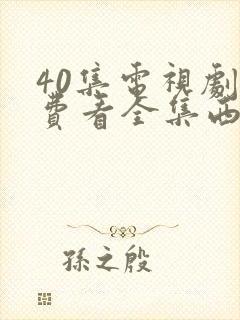 40集電視劇
費看全集西
孫之殷